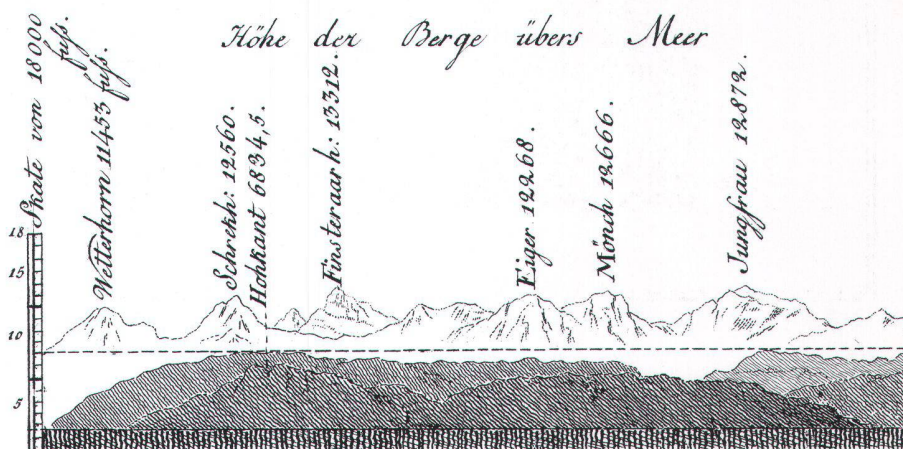 Höhe der Berge übers Meer
Skate von 18000 fuss.
Wetterhorn 11453 fuss.
Schrekh: 12560.
Hohkant 6834,5.
Finsteraarh: 13312.
Eiger 12268.
Mönch 12666.
Jungfrau 12872.
18
15
10
5